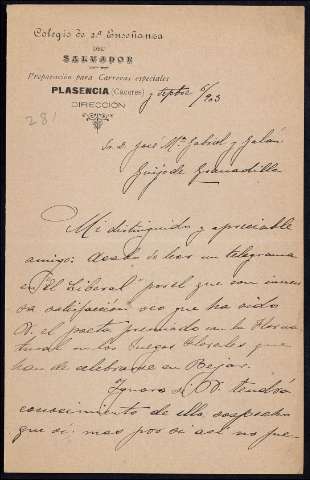 Colegio de 2ª Enseñanza
DEL
SALVADOR
Preparación para Carreras especiales
PLASENCIA (Cáceres) y septbre 6/903
DIRECCIÓN
281
Sr. D. José Mª Gabriel y Galán
Guijo de Granadilla
Mi distinguido y apreciable
amigo: Acabo de leer un telegrama
"El Liberal" por el que con inmen
sa satisfacción veo que ha sido
V. el poeta premiado en la flor na
tural en los Juegos florales que
han de celebrarse en Bejar.
Ignoro si V. tendrá
conocimiento de ello, sospecho
que si: mas por si asi no fue-